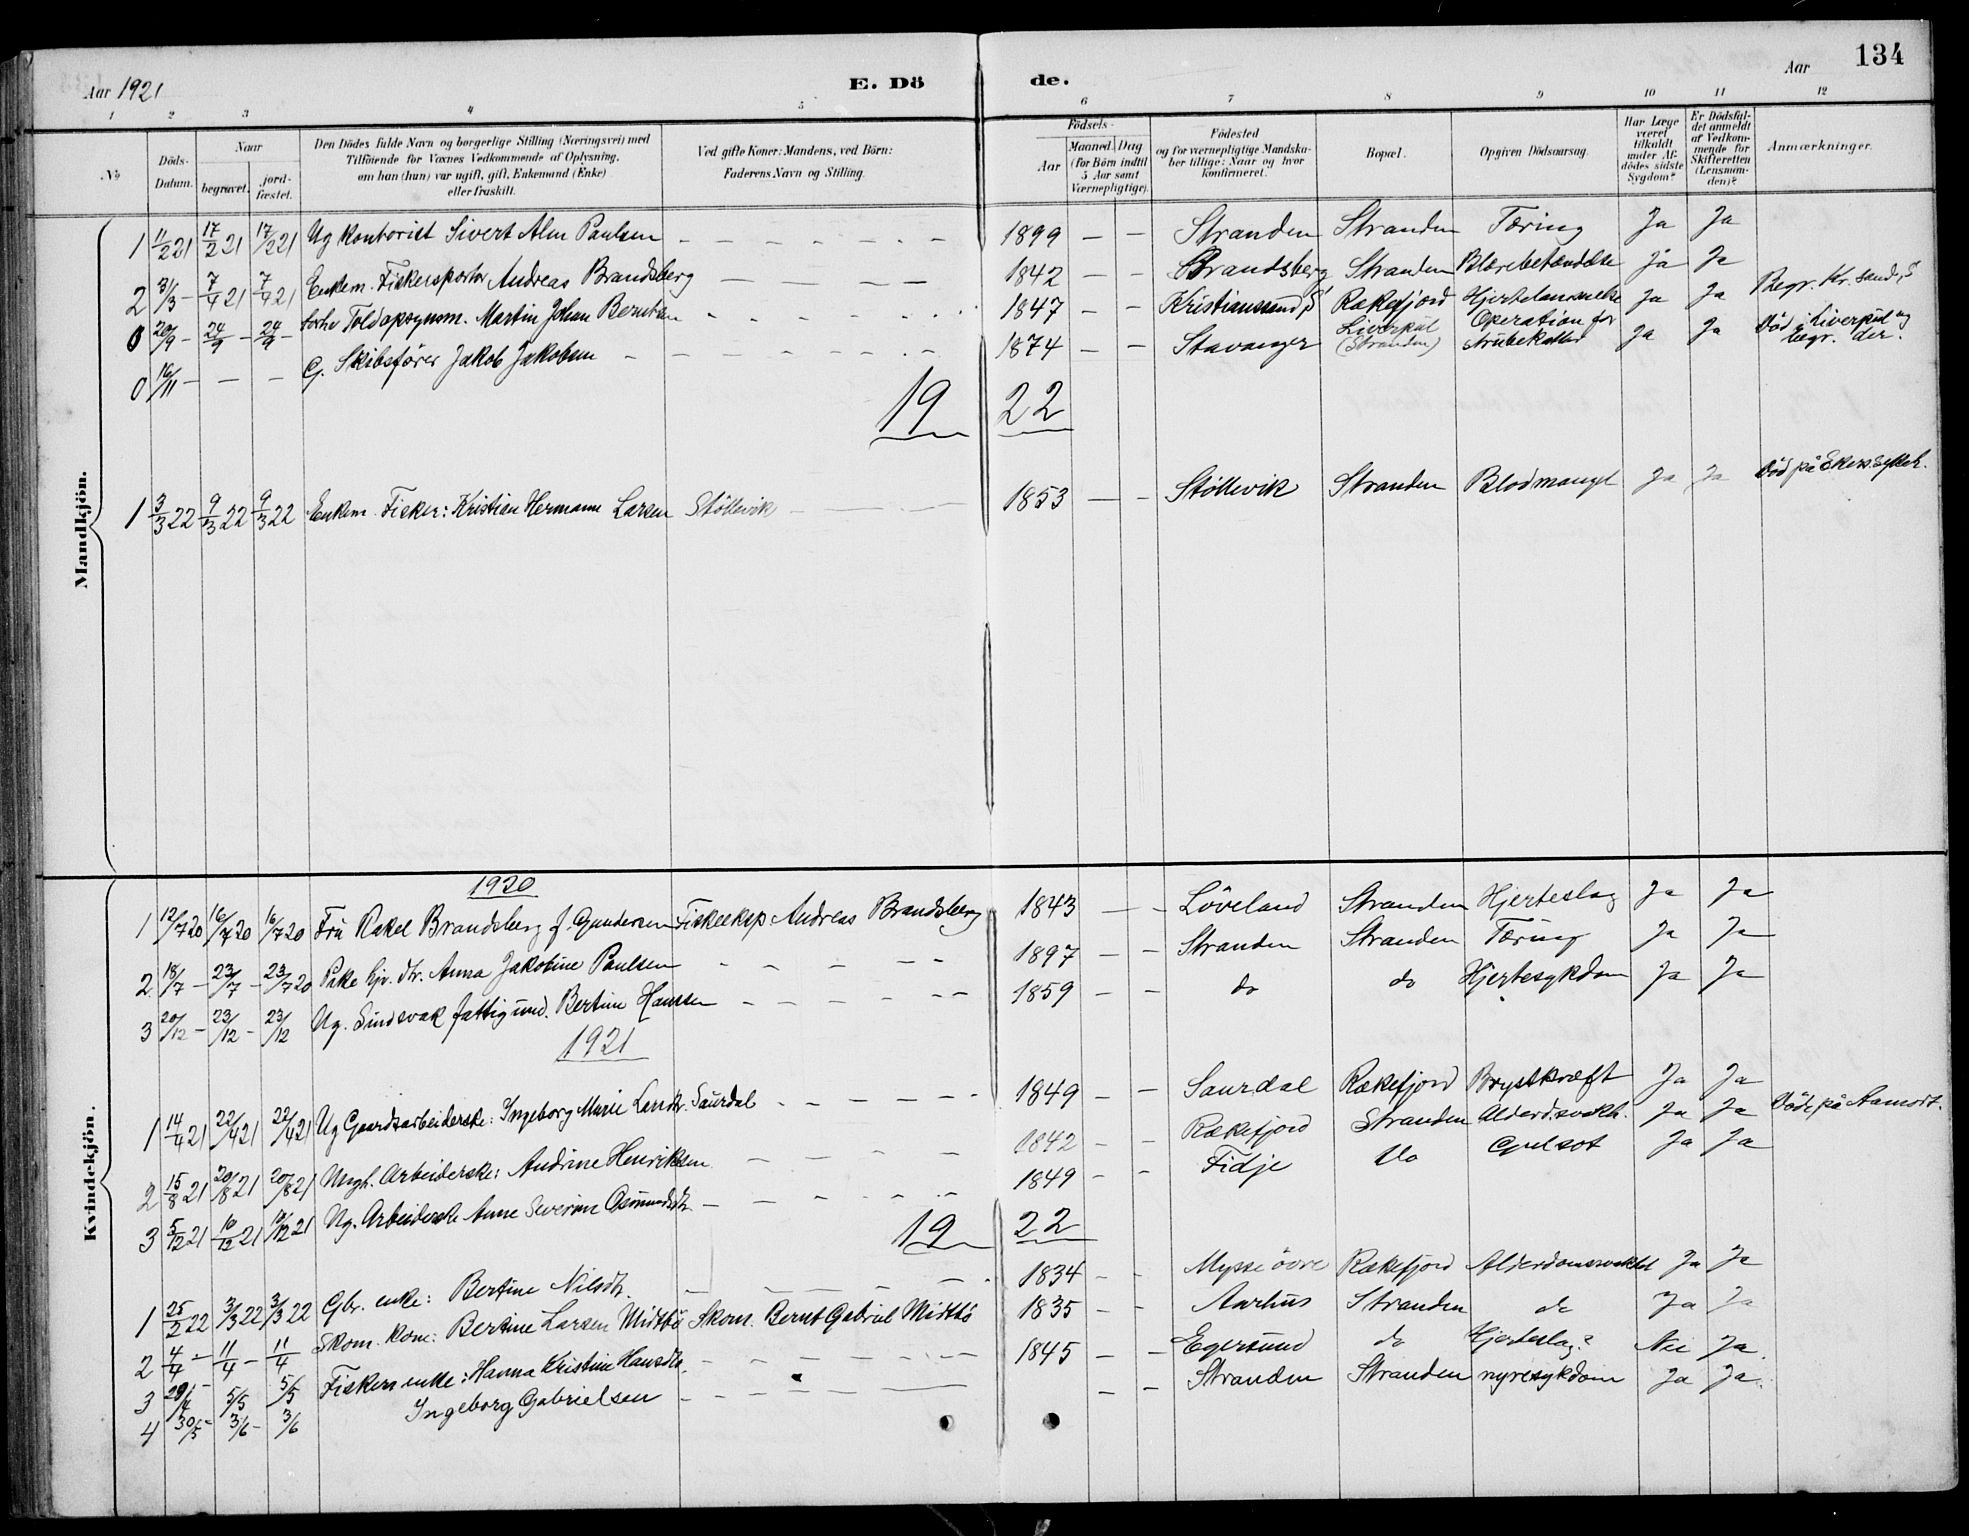 Aar 1921 E. Dö de. Aar 134
1 2 3 4 5 6 7 8 9 10 11 12
No Döds-Datum. Naar begravet. jord-fæstet. Den Dödes fulde Navn og borgerlige Stilling (Næringsvei) med Tilföiende for Voxnes Vedkommende af Oplysning, om han (hun) var ugift, gift, Enkemand (Enke) eller fraskilt. Ved gifte Koner: Mandens, ved Börn: Faderens Navn og Stilling. Födsels- Aar Maaned. Dag (for Börn indtil 5 Aar samt Værnepligtige). Födested og for værnepligtige Mandskaber tillige: Naar og hvor konfirmeret. Bopæl. Opgiven Dödsaarsag. Har Læge været tilkaldt under Afdödes sidste Sygdom? Er Dödsfaldet anmeldt af Vedkommende for Skifteretten (Lensmanden)? Anmærkninger.
Mandkjön.
1 11/2 21 17/2 21 17/2 21 Ug Kontorist Sivert Alm Paulsen – – – – – – 1899 – – Stranden Stranden Tæring Ja Ja
2 31/3 – 7/4 21 7/4 21 Enkem. Fiskexportør Andreas Brandsberg – – – – 1842 – – Brandsberg Stranden Blærebetændelse Ja Ja
0 20/9 – 24/9 – 24/9 – Toldopsynsm. Martin Johan Berntsen – – – – 1847 – – Kristianssand S Rækefjord Hjertelammelse Ja Ja Begr. Kr. sand, S
0 16/11 – – – G. Skibsfører Jakob Jakobsen – – – – – – 1874 – – Stavanger Liverpül (Stranden) Operation for strubekatar Ja Ja Död i Liverpül og begr. der.
19 22
1 3/3 22 9/3 22 9/3 22 Enkem. Fisker: Kristian Hermann Larsen Stöllevik – – – 1853 – – Stöllevik Stranden Blodmangel Ja Ja Död på Ekers. sykeh.
Kvindekjön.
1920
1 12/7 20 16/7 20 16/7 20 Frü Rakel Brandsberg f. Gundersen Fiskeeksp. Andreas Brandsberg 1843 – – Löveland Stranden Hjerteslag Ja Ja
2 18/7 – 23/7 – 23/7 20 Pike hj. dtr. Anna Jakobine Paulsen – – – – – 1897 – – Stranden Stranden Tæring Ja Ja
3 20/12 – 23/12 – 23/12 Ug. Sindsvak fattigünd. Bertine Hanssen – – – – – 1859 – – do do Hjertesykdom Ja Ja
1921
1 14/4 21 22/4 21 22/4 21 Ug Gaardsarbeiderske: Ingeborg Marie Larsdtr. Saurdal – – – – – 1849 – – Saurdal Rækefjord Brystkræft Ja Ja
2 15/8 21 20/8 21 20/8 21 Ungk. Arbeiderske: Andrine Henriksen – – – – – 1842 – – Rækefjord Stranden Alderd.svakh. Ja Ja Döde på Aamodt.
3 5/12 21 10/12 21 10/12 21 Ug. Arbeiderske Anne Severine Osmundsdtr. – – – – – 1849 – – Fidje do Gulsot Ja Ja
19 22
1 25/2 22 3/3 22 3/3 22 Gbr. enke: Bertine Nilsdtr. – – – – – 1834 – – Mysse övre Rækefjord Alderdomssvakhet Ja Ja
2 4/4 – 11/4 – 11/4 Skom. kone: Bertine Larsen Midtbö Skom. Bernt Gabriel Midtbö 1835 – – Aarhus Stranden do Ja Ja
3 29/4 – 5/5 5/5 Fiskerenke: Hanna Kristine Hansdtr. – – – – – 1845 – – Egersund do Hjerteslag? Nei Ja.
4 30/5 – 3/6 – 3/6 Ingeborg Gabrielsen – – – – – – – Stranden Stranden nyresykdom Ja Ja.